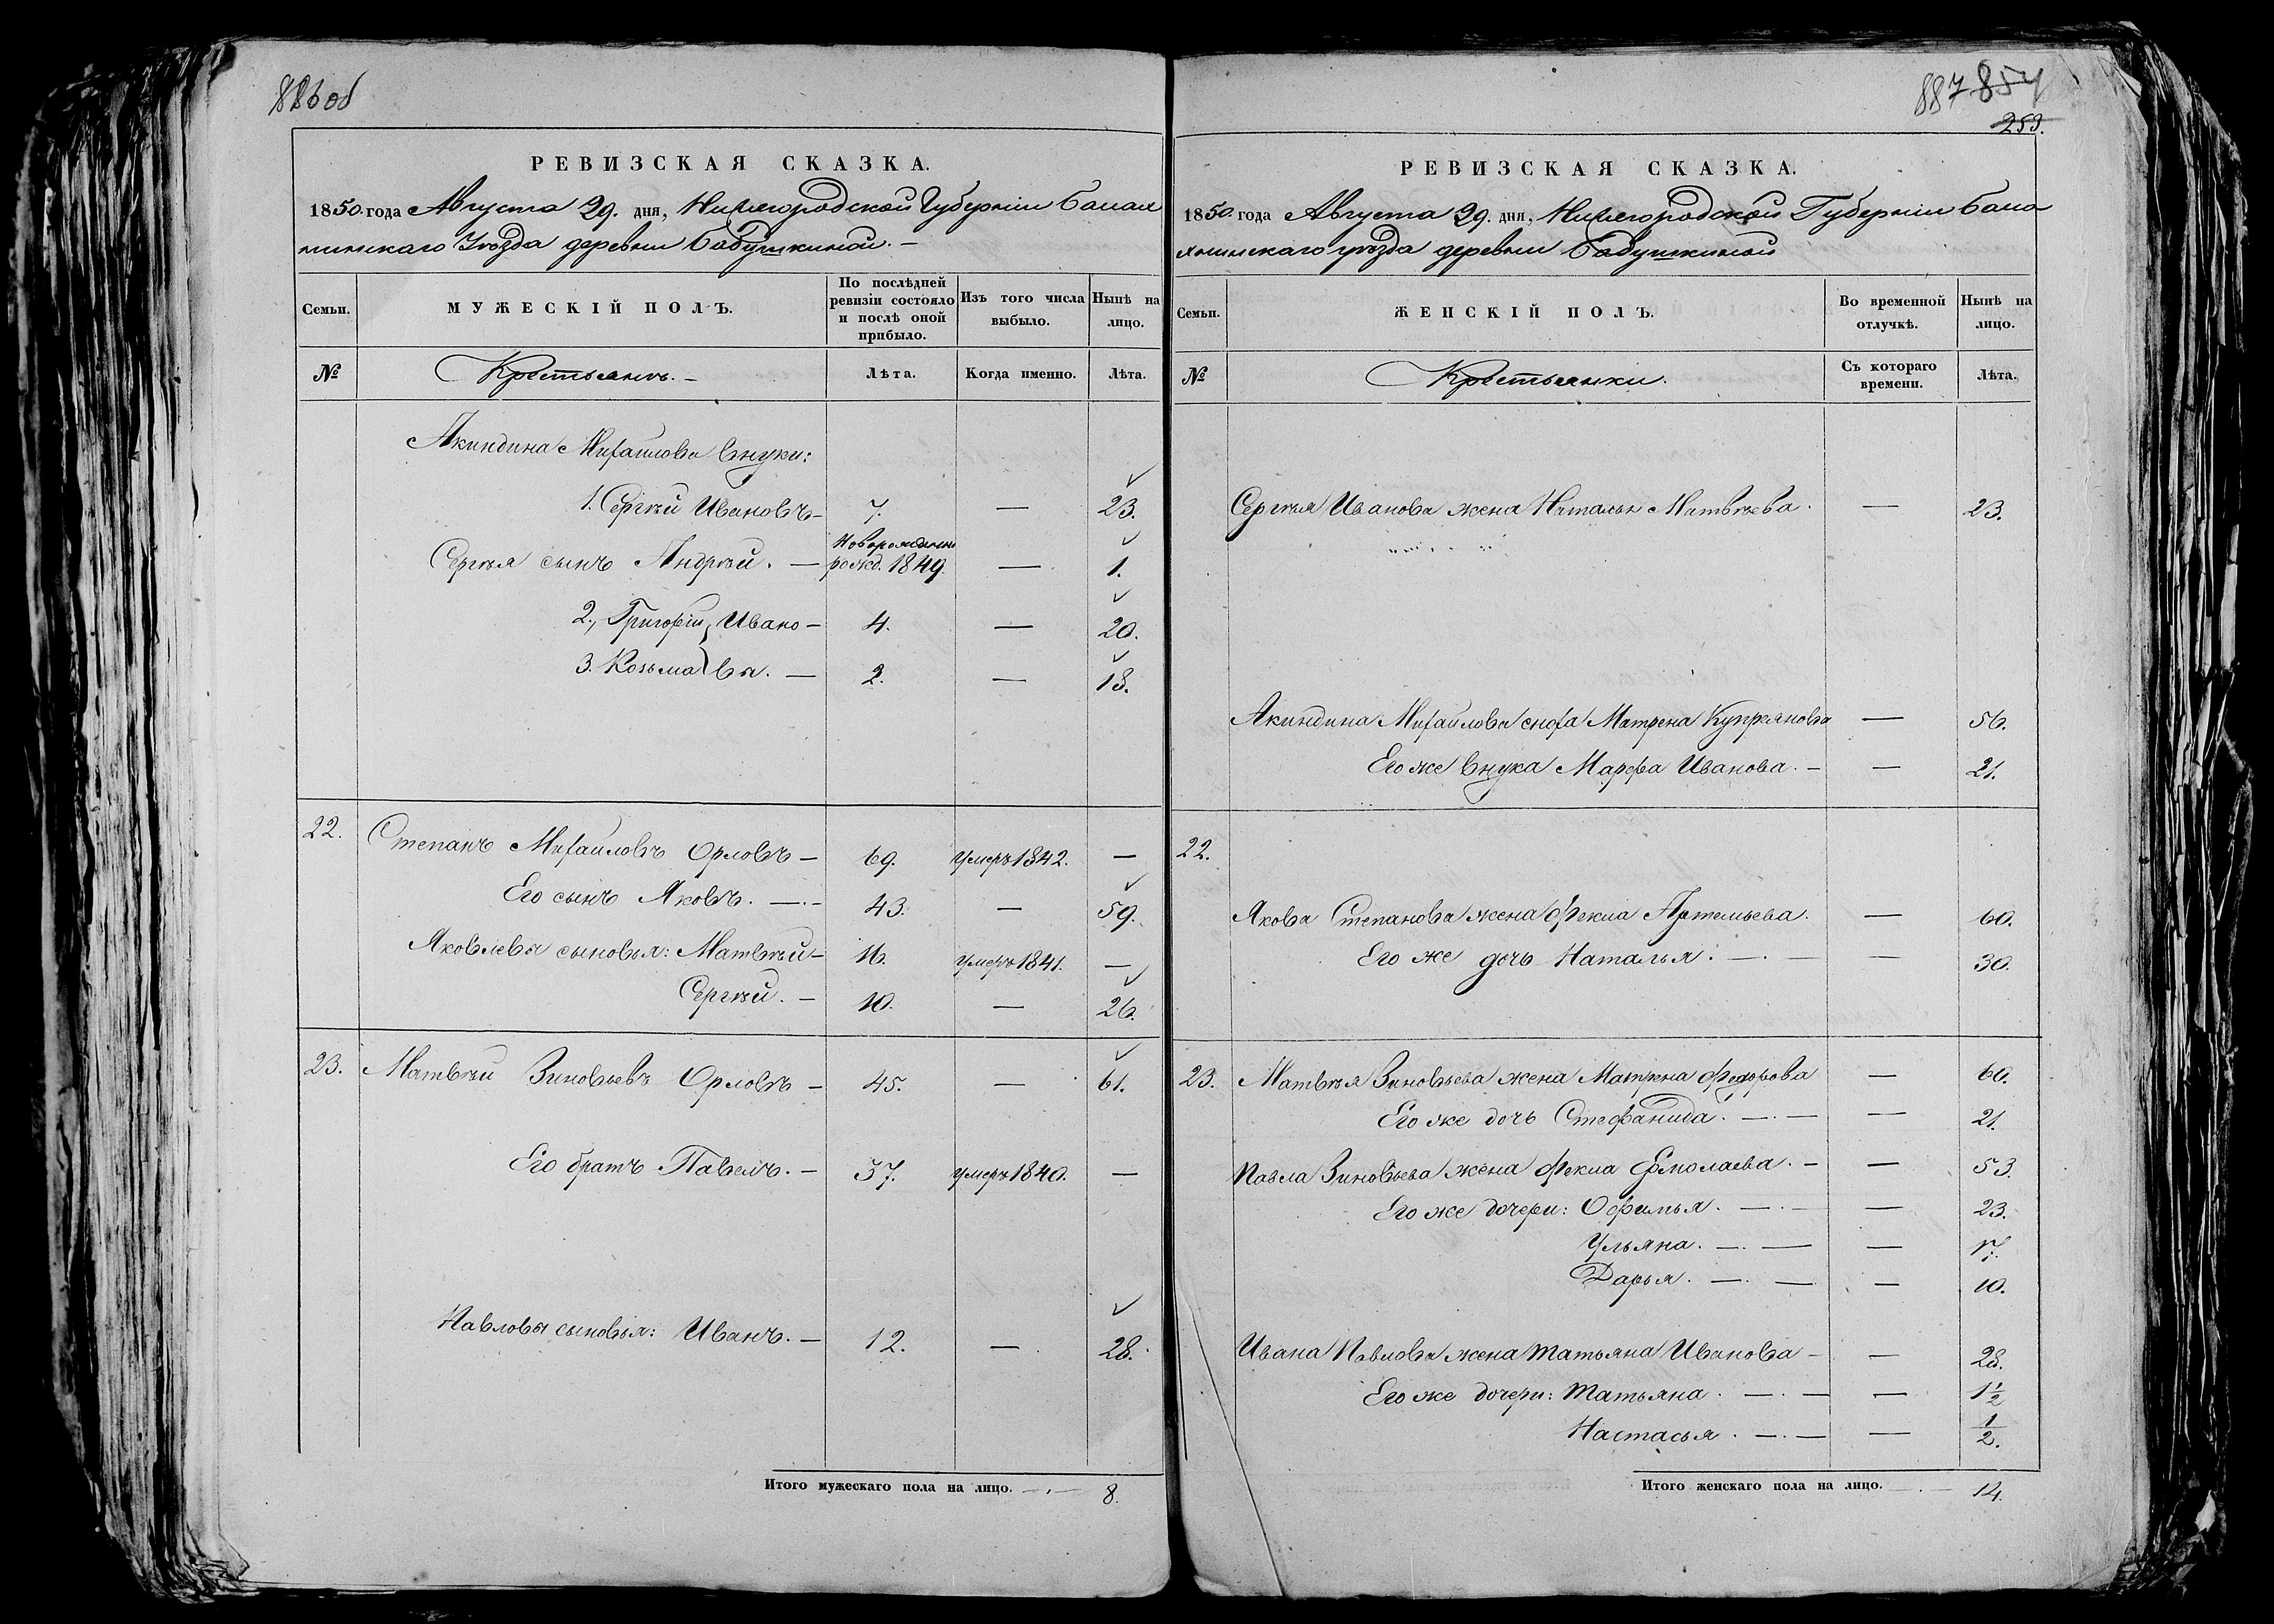 886 об
РЕВИЗСКАЯ СКАЗКА.
1850. года Августа 29. дня, Нижегородской Губерніи Балах
нинскаго Уѣзда деревни Бабушкиной. —
Семьи.
МУЖЕСКІЙ ПОЛЪ.
По послѣдней ревизіи состояло и послѣ оной прибыло.
Изъ того числа выбыло.
Нынѣ на лицо.
№
Крестьянъ. —
Лѣта.
Когда именно.
Лѣта.
Акиндина Михайлова внуки:
1. Сергѣй Ивановъ — 7. — 23.
Новорожденный
Сергѣя сынъ Андрей. — рожд. 1849. — 1.
2., Григорій, Ивано — 4. — 20.
3. Козьма вы. — 2. — 18.
22. Степанъ Михайловъ Орловъ — 69. умеръ 1842. —
Его сынъ Яковъ. — 43. — 59.
Яковлевы сыновья: Матвѣй — 16. умеръ 1841. —
Сергѣй. — 10. — 26.
23. Матвѣй Зиновьевъ Орловъ — 45. — 61.
Его братъ Павелъ. — 37. умеръ 1840. —
Павловы сыновья: Иванъ. — 12. — 28.
Итого мужескаго пола на лицо. — 8.
887 854
253.
РЕВИЗСКАЯ СКАЗКА.
1850. года Августа 29. дня, Нижегородской Губерніи
уѣзда деревни Бабушкиной
Семьи.
ЖЕНСКІЙ ПОЛЪ.
Во временной отлучкѣ.
Нынѣ на лицо.
№
Крестьянки.
Съ котораго времени.
Лѣта.
Сергѣя Иванова жена Наталья Матвѣева. — 23.
Акиндина Михайлова сноха Матрена Купреянова — 56.
Его же внука Марфа Иванова. — — 21.
22.
Якова Степанова жена Фекла Артемьева. — 60.
Его же дочь Наталья. — — 30.
23. Матвѣя Зиновьева жена Матрена Федорова — 60.
Его же дочь Стефанида. — — 21.
Павла Зиновьева жена Фекла Ермолаева. — — 53.
Его же дочери: Офимья. — — 23.
Ульяна. — — 17.
Дарья. — — 10.
Ивана Павлова жена Татьяна Иванова — — 28.
Его же дочери: Татьяна. — — 1 1/2
Настасья. — — 1/2.
Итого женскаго пола на лицо. — 14.